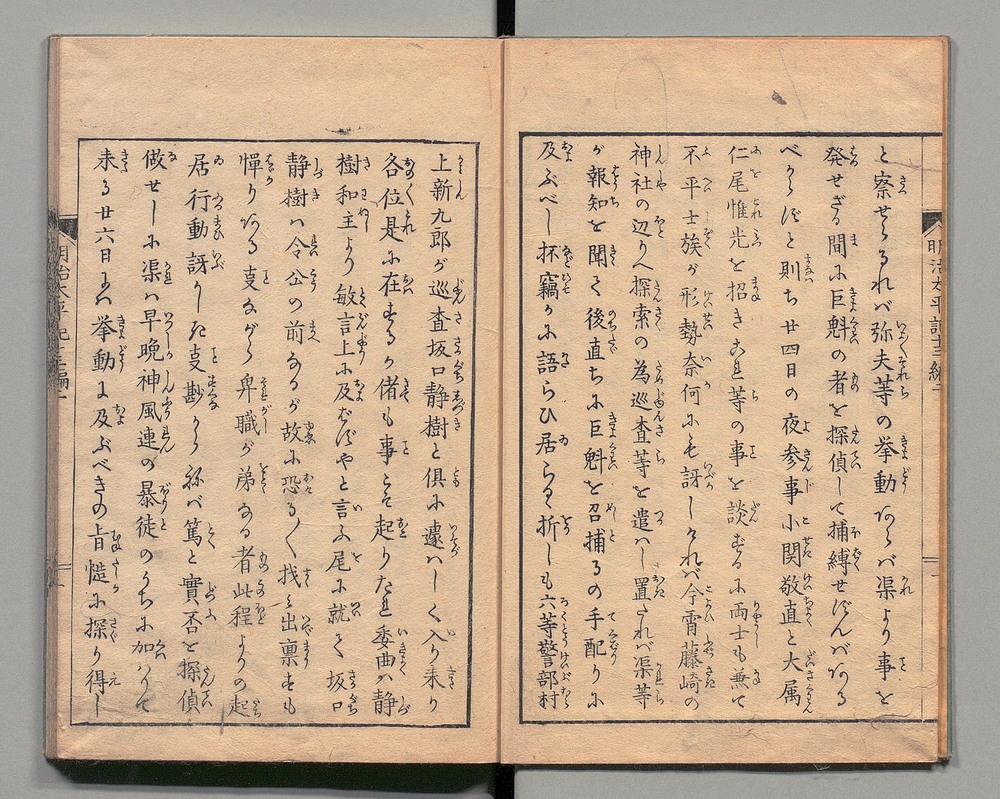 と察せらるれバ弥夫等の挙動あらバ渠より事を
発せざる間に巨魁の者を探偵して捕縛せずんバある
べからずと則ち廿四日の夜参事小関敬直と大属
仁尾惟光を招き是等の事を談ずるに両士も兼て
不平士族が形勢奈何にも訝しけれバ今宵藤崎の
神社の辺りへ探索の為巡査等を遣ハし置たれバ渠等
が報知を聞て後直ちに巨魁を召捕るの手配りに
及ぶべし抔竊かに語らひ居らる折しも六等警部村
上新九郎が巡査坂口静樹と倶に遽ハしく入り来り
各位是に在するか偖も事こそ起りたれ委曲ハ静
樹和主より敏言上に及ばずやと言ふ尾に就て坂口
静樹ハ令公の前なるが故に恐る〱找み出稟すも
憚りある事ながら卑職が弟なる者此程よりの起
居行動訝かしき事尠からねバ篤と實否を探偵
做せしに渠ハ早晩神風連の暴徒のうちに加ハりて
来る廿六日にハ挙動に及ぶべきの旨慥に探り得し
明治太平記十三編二